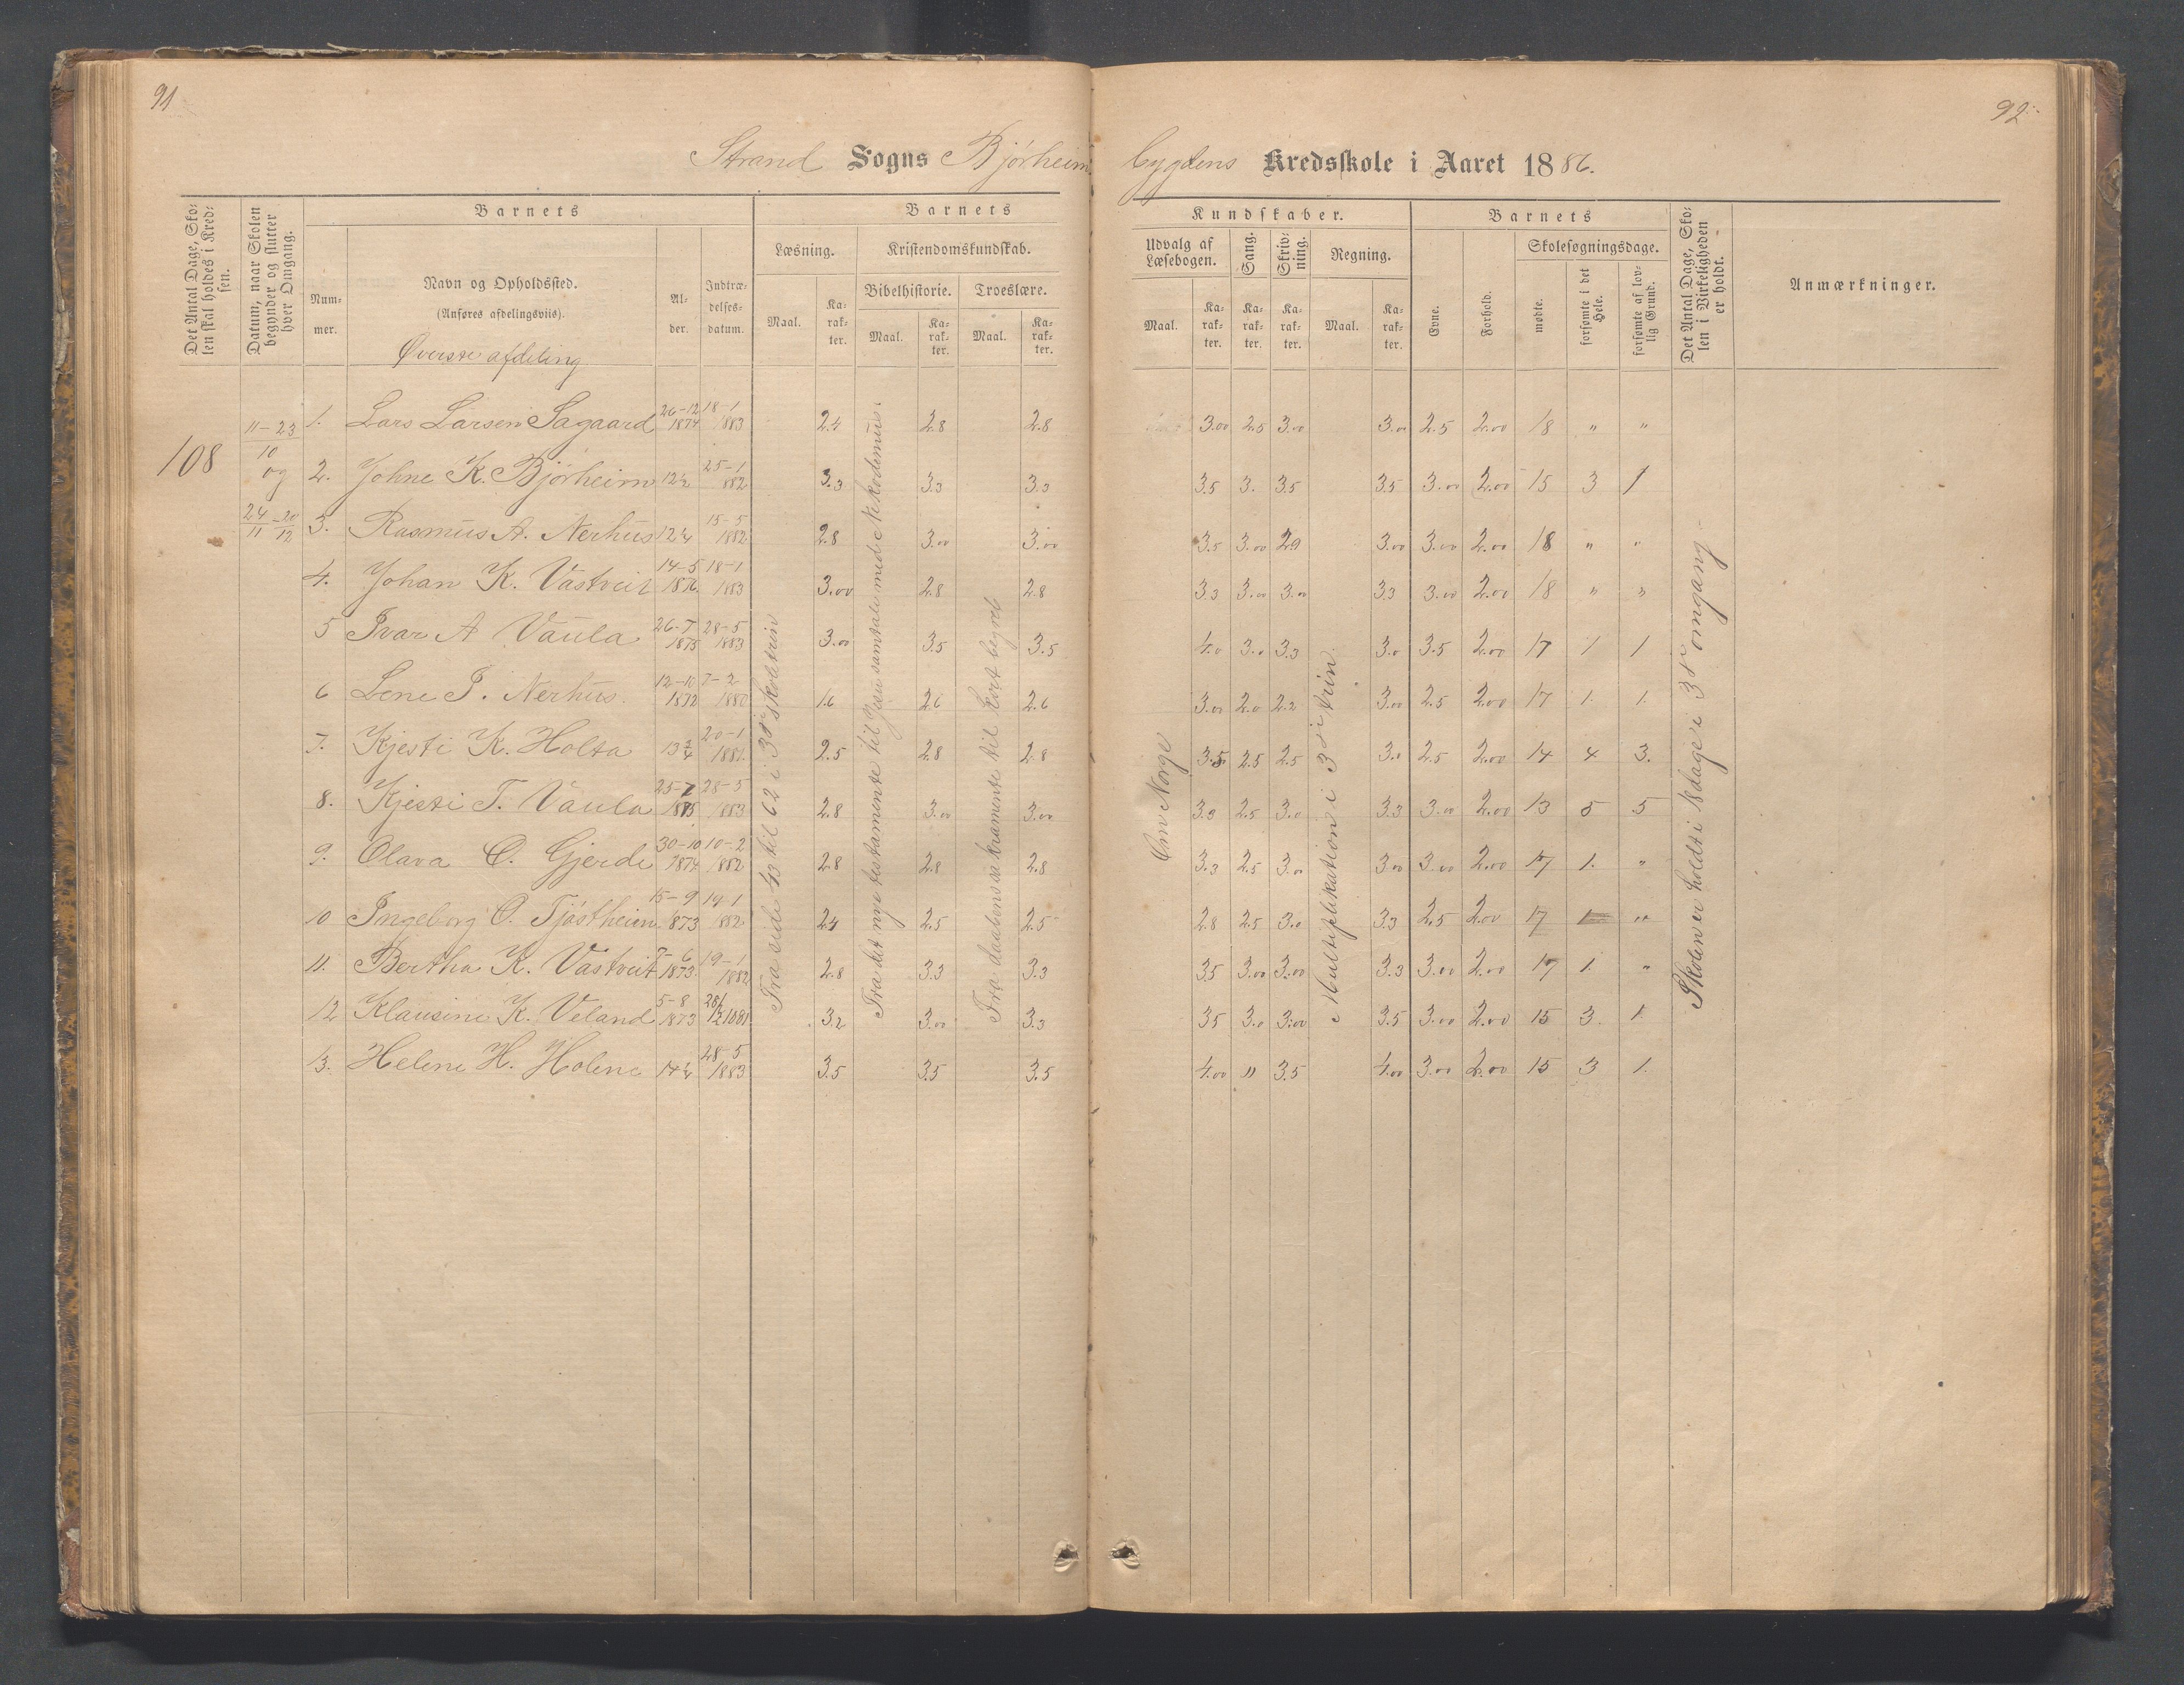 91
92.
Strand Sogns Bjørheim
bygdens Kredsskole i Aaret 1886.
Det Antal Dage, Skolen skal holdes i Kredsen.
Datum, naar Skolen begynder og slutter hver Omgang.
Barnets
Nummer.
Navn og Opholdssted.
(Anføres afdelingsviis).
Øverste afdeling
Alder.
Indtrædelsesdatum.
Barnets
Læsning.
Kristendomskundskab.
Maal.
Karakter.
Bibelhistorie.
Troeslære.
Maal.
Karakter.
Maal.
Karakter.
Kundskaber.
Udvalg af Læsebogen.
Sang.
Skrivning.
Regning.
Maal.
Karakter.
Karakter.
Karakter.
Maal.
Karakter.
Barnets
Evne.
Forhold.
Skolesøgningsdage.
mødte.
forsømte i det Hele.
forsømte af lovlig Grund.
Det Antal Dage, Skolen i Virkeligheden er holdt.
Anmærkninger.
108
11–23
10
og
24 – 20
11 12
1. Lars Larsen Sagaard 26–12 1874 18–1 1883 2.4 2.8 2.8 3.00 2.5 3.00 3.00 2.5 2.00 18 " "
2. Johne K. Bjørheim 12½ 25–1 882 3.3 3.3 3.3 3.5 3. 3.5 3.5 3.00 2.00 15 3 1
3. Rasmus A. Nerhus 12¼ 15–5 1882 2.8 3.00 3.00 3.5 3.00 2.9 3.00 3.00 2.00 18 " "
4. Johan K. Västveit 14–5 1876 18–1 1883 3.00 2.8 2.8 3.3 3.00 3.00 3.3 3.00 2.00 18 " "
5 Ivar A Vaula 26–7 1875 28–5 1883 3.00 3.5 3.5 4.0 3.0 3.3 3.0 3.5 2.00 17 1 1
6 Lene P. Nerhus. 12–10 1872 7–2 1880 1.6 2.6 2.6 3.00 2.0 2.2 3.00 2.5 2.00 17 1. 1.
7. Kjesti K. Holta 13¾ 20–1 1881. 2.5 2.8 2.8 3.5 2.5 2.5 3.0 2.5 2.00 14 4 3.
8. Kjesti T. Vaula 25–7 1875 28–5 1883 2.8 3.00 3.00 3.3 2.5 3.0 3.3 3.00 2.00 13 5 5
9. Olava O. Gjerde 30–10 1874 10–2 1882 2.8 2.8 2.8 3.3 2.5 3.00 3.00 3.00 2.00 17 1. "
10 Ingeborg O. Tjøstheim 15–9 1873 19–1 882 2.4 2.5 2.5 2.8 2.5 3.0 3.3 2.5 2.00 17 1 "
11. Bertha K. Västveit 6 1873. 19–1 1882 2.8 3.3 3.3 3.5 3.00 3.00 3.3 3.00 2.00 17 1. "
12 Klausine K. Veland 5–8 1873 1881 3.2 3.00 3.3 3.5 3.0 3.00 3.5 3.00 2.00 15 3. 1.
13. Helene H. Holene 14¼ 28–5 1883 3.5 3.5 3.5 4.00 " 3.5 4.00 3.00 2.00 15 3 1.
Fra side 43 til 62 i 3die skoletrin
Fra det nye testamente til Jesu samtale med Nikodemus.
Fra daabens sakramente til kort begreb
Om Norge
Multiplikation i 3die trin.
Skolen er holdt i 18 dage i 3die omgang